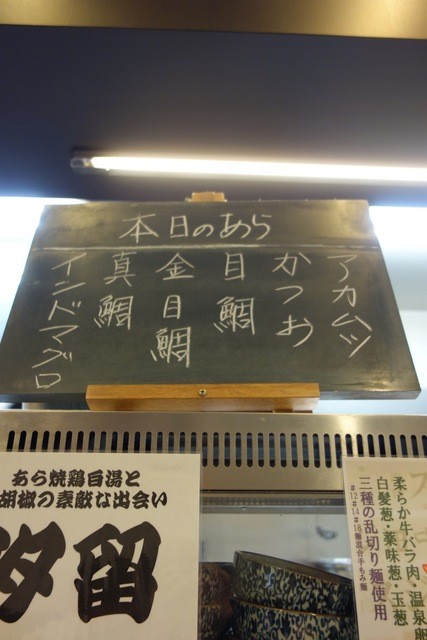 本日のあら
アカムツ
かつお
目鯛
金目鯛
真鯛
インドマグロ
あら焼鶏白湯と
胡椒の素敵な出会い
汐留
柔らか牛バラ肉・温泉卵
白髪葱・薬味葱・玉葱
三種の乱切り麺使用